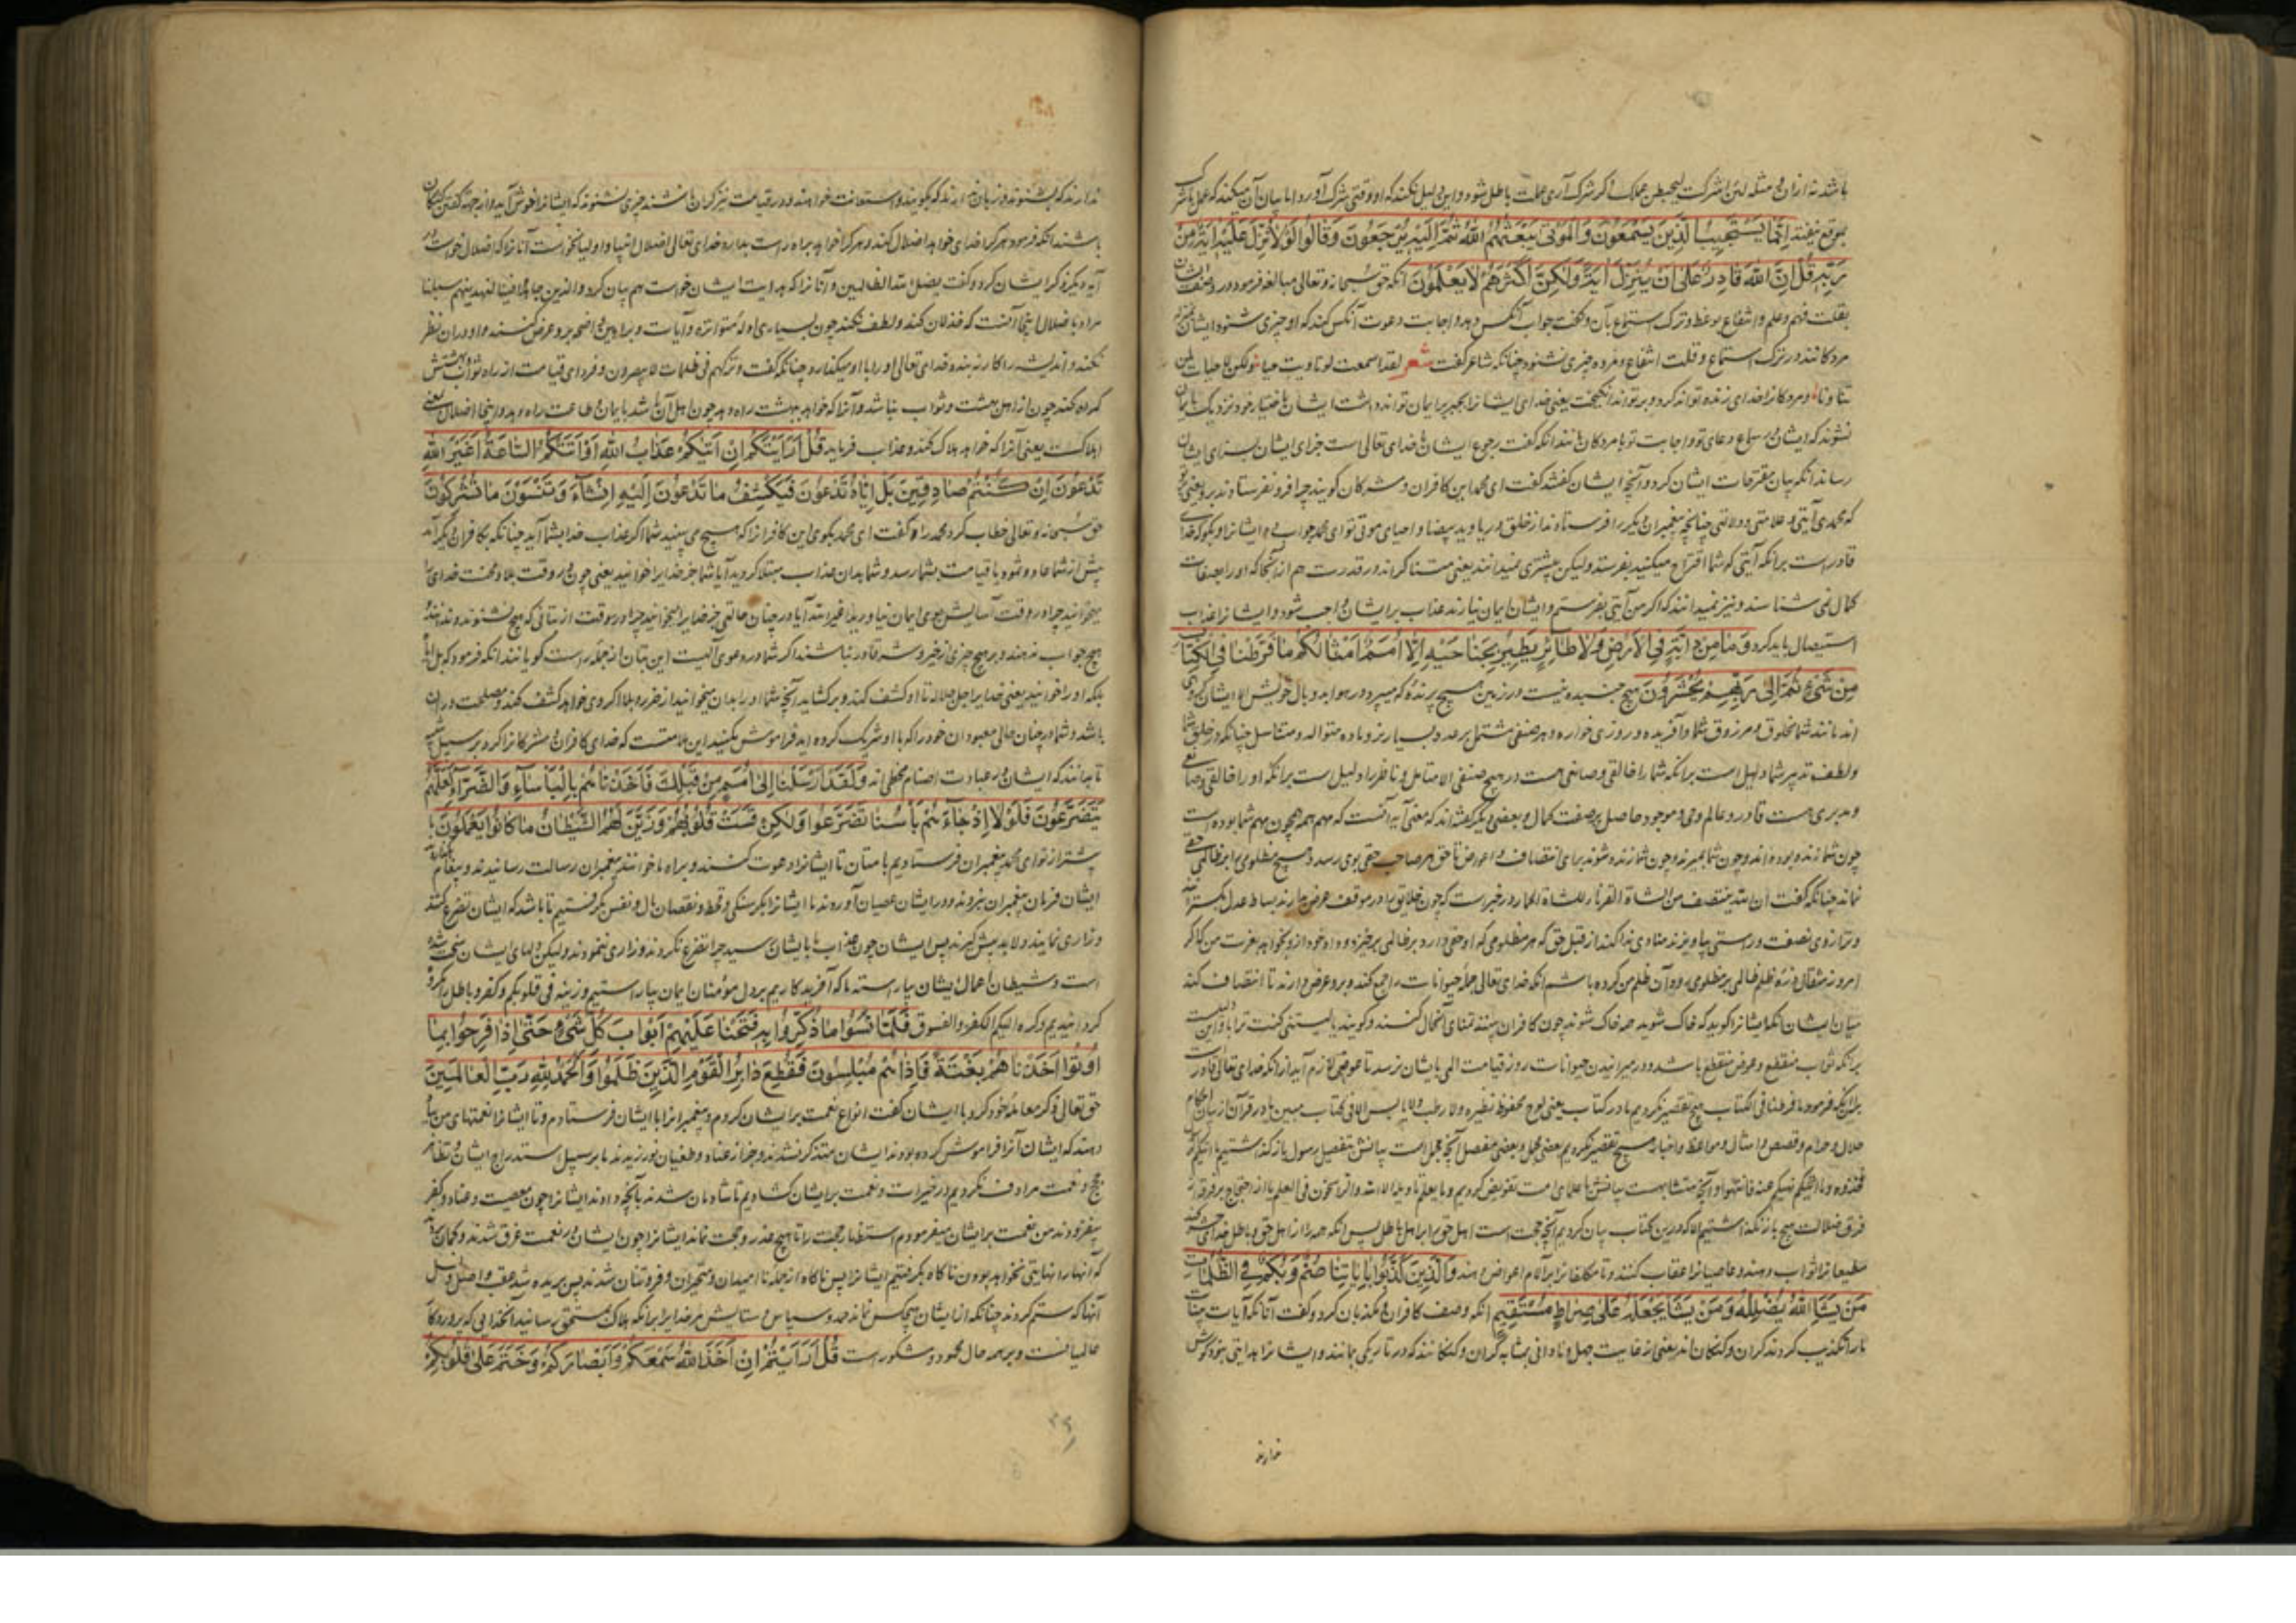 باشد نه ازان و مثله لئن اشرکت لیحبطن عملک اگر شرک آری عملت باطل شود و این دلیل نکند که او وقتی شرک آورد اما بیان آن میکند که عمل با شرک
بموقع نیفتد إِنَّمَا يَسْتَجِيبُ الَّذِينَ يَسْمَعُونَ وَالْمَوْتَى يَبْعَثُهُمُ اللَّهُ ثُمَّ إِلَيْهِ يُرْجَعُونَ وَقَالُوا لَوْلَا نُزِّلَ عَلَيْهِ آيَةٌ مِنْ
رَبِّهِ قُلْ إِنَّ اللَّهَ قَادِرٌ عَلَى أَنْ يُنَزِّلَ آيَةً وَلَكِنَّ أَكْثَرَهُمْ لَا يَعْلَمُونَ آنکه حق سبحانه و تعالی مبالغه فرمود در وصف ایشان
بقلت فهم و علم و انتفاع بوعظ و ترک استماع بآن و گفت جواب آنکس دهد و اجابت دعوت آنکس کند که او چیزی شنود ایشان بمنزله
مردگانند در ترک استماع و قلت انتفاع و مرده چیزی نشنود چنانکه شاعر گفت شعر لقد اسمعت لو نادیت حیا ولکن لا حیات لمن
تنادی و مردگانرا خدای زنده تواند کرد و بر تواند انگیخت یعنی خدای ایشانرا بجبر بر ایمان تواند داشت ایشان باختیار خود نزدیک بایمان
نشوند که ایشان در سماع دعای تو و اجابت تو با مردگان مانند آنکه گفت رجوع ایشان با خدای تعالی است جزای ایشان بسزای ایشان
رساند آنکه بیان مقترحات ایشان کرد و آنچه ایشان گفتند گفت ای محمد این کافران و مشرکان گویند چرا فرو نفرستادند برو یعنی
که محمد آیتی و علامتی و دلالتی چنانچه پیغمبران دیگر را فرستادند از خلق دریا و ید بیضا و احیای موتی تو ای محمد جواب ده ایشانرا و بگو که خدای
قادر است برانکه آیتی که شما اقتراح میکنید بفرستد ولیکن بیشتری نمیدانند یعنی مستنکراند در قدرت هم از آنجا که او را بصفات
کمال نمی شناسند و نیز نمیدانند که اگر من آیتی بفرستم و ایشان ایمان نیارند عذاب بر ایشان واجب شود و ایشانرا عذاب
استیصال باید کرد وَمَا مِنْ دَابَّةٍ فِي الْأَرْضِ وَلَا طَائِرٍ يَطِيرُ بِجَنَاحَيْهِ إِلَّا أُمَمٌ أَمْثَالُكُمْ مَا فَرَّطْنَا فِي الْكِتَابِ
مِنْ شَيْءٍ ثُمَّ إِلَى رَبِّهِمْ يُحْشَرُونَ هیچ جنبنده نیست در زمین هیچ پرنده که میپرد در هوا بدو بال خویش الا ایشان گروهی
اند مانند شما مخلوق و مرزوق شما و آفریده و روزی خواره و هر صنفی مشتمل بر عدد بسیار نر و ماده متوالد و متناسل چنانکه در خلق شما
و لطف تدبیر شما دلیل است برانکه شما را خالقی و صانعی هست در هیچ صنفی الا متامل و ناظر را دلیل است برانکه او را خالقی و صانعی
و مدبری هست قادر و عالم و حی و موجود حاصل بر صفت کمال و بعضی دیگر گفته اند که معنی آیه آنست که مهم همه چون مهم شما بوده است
چون شما زنده بوده اند و چون شما بمیرند و چون شما زنده شوند برای انتصاف و اعواض تا حق هر صاحب حقی بوی رسد و هیچ مظلومی را بر ظالمی حقی
نماند چنانکه گفت ان الله ینتصف من الشاة القرناء للشاة الجماء و در خبر است که چون خلایق را در موقف عرض بدارند بساط عدل بگسترانند
و ترازوی نصفت و راستی بیاویزند منادی ندا کند از قبل حق که هر مظلومی که او حقی دارد بر ظالمی برخیزد و داد خود از و بخواهد بعزت من که اگر
امروز مثقال ذره ظلم ظالمی بر مظلومی رود آن ظلم من کرده باشم آنکه خدای تعالی جمله حیوانات را جمع کند و برو عرض دارند تا انتصاف کند
میان ایشان آنکه ایشانرا گوید که خاک شوید همه خاک شوند چون کافران بینند تمنای آنحال کنند و گویند یا لیتنی کنت ترابا و این دلیلست
برانکه ثواب منقطع و عوض منقطع باشد و در میرانیدن حیوانات روز قیامت المی بایشان نرسد تا عوضی لازم آید از آنکه خدای تعالی قادرست
بران آنکه فرمود ما فرطنا فی الکتاب هیچ تقصیر نکردیم ما در کتاب یعنی لوح محفوظ نظیره ولا رطب ولا یابس الا فی کتاب مبین یا در قرآن از بیان احکام
حلال و حرام و قصص و امثال و مواعظ و اخبار هیچ تقصیر نکردیم بعضی مجمل و بعضی مفصل آنچه مجمل است بیانش بتفصیل رسول باز گذاشتیم ما آتیکم الرسول
فخذوه و ما نهیکم عنه فانتهوا و آنچه متشابهست بیانش با علمای امت تفویض کردیم و ما یعلم تاویله الا الله والراسخون فی العلم تا از احتجاج بر فرق از
فرق ضلالت هیچ باز نگذاشتیم الا که درین کتاب بیان کردیم آنچه حجت است اهل حق را بر اهل باطل پس آنکه همه را از اهل حق و باطل خدای حشر کند
مطیعانرا ثواب دهند و عاصیانرا عقاب کنند و تا مکلفانرا بر آلام اعواض دهند وَالَّذِينَ كَذَّبُوا بِآيَاتِنَا صُمٌّ وَبُكْمٌ فِي الظُّلُمَاتِ
مَنْ يَشَأِ اللَّهُ يُضْلِلْهُ وَمَنْ يَشَأْ يَجْعَلْهُ عَلَى صِرَاطٍ مُسْتَقِيمٍ آنکه وصف کافران و مکذبان کرد و گفت آنانکه آیات بینات
ما را تکذیب کردند کران و گنگان اند یعنی از غایت جهل و نادانی بمثابه کران و گنگانند که در تاریکی بمانند و ایشانرا هدایتی نبود گوش
ندارند
ندارند که بشنوند و زبان ندارند که بگویند و استعانت خواهند و در قیامت نیز کران باشند چیزی نشنوند که ایشانرا خوش آید و از حجت گفتن گنگان
باشند آنکه فرمود هر کرا خدای خواهد اضلال کند و هر کرا خواهد براه راست بدارد خدای تعالی اضلال انبیا و اولیا نخواست آنانرا که اضلال خواست در
آیه دیگر ذکر ایشان کرد و گفت یضل الله الظالمین و آنانرا که هدایت ایشان خواست هم بیان کرد والذین جاهدوا فینا لنهدینهم سبلنا
مراد باضلال اینجا آنست که خذلان کند و لطف نکند چون بسیاری ادله متواتره و آیات و براهین واضحه برو عرض کنند و او دران نظر
نکند و اندیشه را کار نه بندد خدای تعالی او را با او میگذارد چنانکه گفت و ترکهم فی ظلمات لا یبصرون و فردای قیامت از راه ثواب و بهشتش
گمراه کند چون از اهل بهشت و ثواب نباشد و آنرا که خواهد ببهشت راه دهد چون اهل آن باشد بایمان و طاعت راه دهد و اینجا اضلال بمعنی
اهلاکست یعنی آنرا که خواهد هلاک کند و عذاب فرماید قُلْ أَرَأَيْتَكُمْ إِنْ أَتَاكُمْ عَذَابُ اللَّهِ أَوْ أَتَتْكُمُ السَّاعَةُ أَغَيْرَ اللَّهِ
تَدْعُونَ إِنْ كُنْتُمْ صَادِقِينَ بَلْ إِيَّاهُ تَدْعُونَ فَيَكْشِفُ مَا تَدْعُونَ إِلَيْهِ إِنْ شَاءَ وَتَنْسَوْنَ مَا تُشْرِكُونَ
حق سبحانه و تعالی خطاب کرد محمد را و گفت ای محمد بگوی این کافرانرا که هیچ می بینید شما اگر عذاب خدا بشما آید چنانکه بکافران دیگر آمد
پیش از شما عاد و ثمود یا قیامت بشما رسد و شما بدان عذاب مبتلا گردید آیا شما جز خدایرا خوانید یعنی چون در وقت بلا و محنت خدای را
میخوانید چرا در وقت آسایش روی ایمان نیاورید اغیر الله آیا در چنان حالتی جز خدایرا میخوانید چرا در وقت از بتانی که هیچ نشنوند و نه بینند
هیچ جواب ندهند و بر هیچ چیزی از خیر و شر قادر نباشند اگر شما در دعوی الهیت این بتان از جمله راست گویانند آنکه فرمود که بل ایاه
بلکه او را خوانید یعنی خدایرا جل جلاله تا او کشف کند و برگشاید آنچه شما او را بدان میخوانید از ضرر و بلا اگر وی خواهد کشف کند و مصلحت دران
باشد و شما در چنان حالی معبودان خود را که با او شریک کرده اید فراموش بکنید این ملامتست که خدای کافران و مشرکانرا کرد بر سبیل تنبیه
تا بدانند که ایشان در عبادت اصنام مخطی اند وَلَقَدْ أَرْسَلْنَا إِلَى أُمَمٍ مِنْ قَبْلِكَ فَأَخَذْنَاهُمْ بِالْبَأْسَاءِ وَالضَّرَّاءِ لَعَلَّهُمْ
يَتَضَرَّعُونَ فَلَوْلَا إِذْ جَاءَهُمْ بَأْسُنَا تَضَرَّعُوا وَلَكِنْ قَسَتْ قُلُوبُهُمْ وَزَيَّنَ لَهُمُ الشَّيْطَانُ مَا كَانُوا يَعْمَلُونَ ما
پیشتر از تو ای محمد پیغمبران فرستادیم بامتان تا ایشانرا دعوت کنند و براه ما خوانند پیغمبران رسالت رسانیدند و پیغام
ایشان فرمان پیغمبران نبردند و در ایشان عصیان آوردند ما ایشانرا بگرسنگی و قحط و نقصان مال و نفس بگرفتیم تا باشد که ایشان تضرع کنند
و زاری نمایند و لابه پیش گیرند پس ایشان چون عذاب ما بایشان رسید چرا تضرع نکردند و زاری ننمودند ولیکن دلهای ایشان سخت شده
است و شیطان اعمال ایشان بیاراسته ما که آفریدگاریم بر دل مؤمنان ایمان بیاراستیم و زینه فی قلوبکم و کفر و باطل را مکروه
گردانیدیم و کره الیکم الکفر والفسوق فَلَمَّا نَسُوا مَا ذُكِّرُوا بِهِ فَتَحْنَا عَلَيْهِمْ أَبْوَابَ كُلِّ شَيْءٍ حَتَّى إِذَا فَرِحُوا بِمَا
أُوتُوا أَخَذْنَاهُمْ بَغْتَةً فَإِذَا هُمْ مُبْلِسُونَ فَقُطِعَ دَابِرُ الْقَوْمِ الَّذِينَ ظَلَمُوا وَالْحَمْدُ لِلَّهِ رَبِّ الْعَالَمِينَ
حق تعالی ذکر معامله خود کرد با ایشان گفت انواع نعمت بر ایشان کردم و پیغمبرانرا بایشان فرستادم و تا ایشانرا نعمتهای من یاد
دهند که ایشان آنرا فراموش کرده بودند ایشان متذکر نشدند و جز از عناد و طغیان نورزیدند ما بر سبیل استدراج ایشان و تظاهر
حجج و نعمت مرادف نکردیم در خیرات و نعمت بر ایشان گشادیم تا شادمان شدند بآنچه دادند ایشانرا چون معصیت و عناد و کفر
بیفزودند من نعمت بر ایشان میفزودم استظهار حجت را تا هیچ عذر و حجت نماند ایشانرا چون ایشان در نعمت غرق شدند و گمان
که آنها را نهایتی نخواهد بودن ناگاه بگرفتیم ایشانرا پس ناگاه از جمله ناامیدان و متحیران و فروتنان شدند پس بریده شد عقب و اصل و نسل
آنها که ستم کردند چنانکه از ایشان هیچکس نماند حمد و سپاس و ستایش مر خدایرا برانکه هلاک مستحق رسانید آنخدایی که پروردگار
عالمیانست و بر همه حال محمود و مشکورست قُلْ أَرَأَيْتُمْ إِنْ أَخَذَ اللَّهُ سَمْعَكُمْ وَأَبْصَارَكُمْ وَخَتَمَ عَلَى قُلُوبِكُمْ